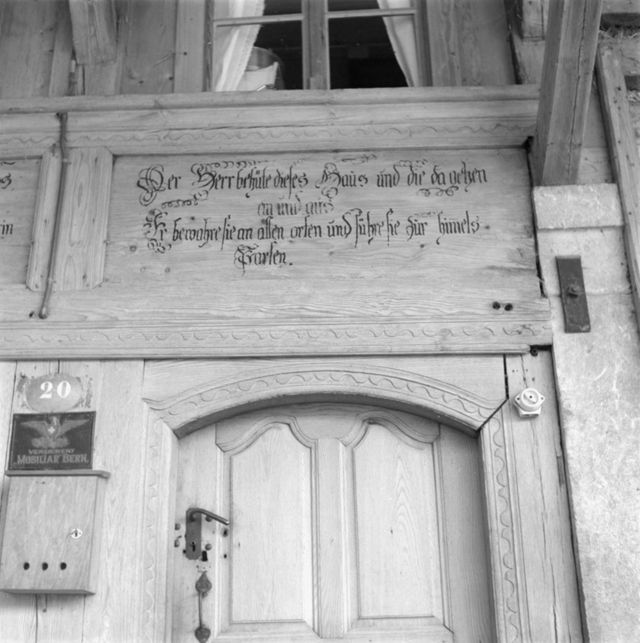 Der Herr behüte dieses Haus und die da gehen
ein und aus
Er bewahre sie an allen orten und führe sie zur himels-
Garten.
20
VERSICHERT
MOBILIAR BERN